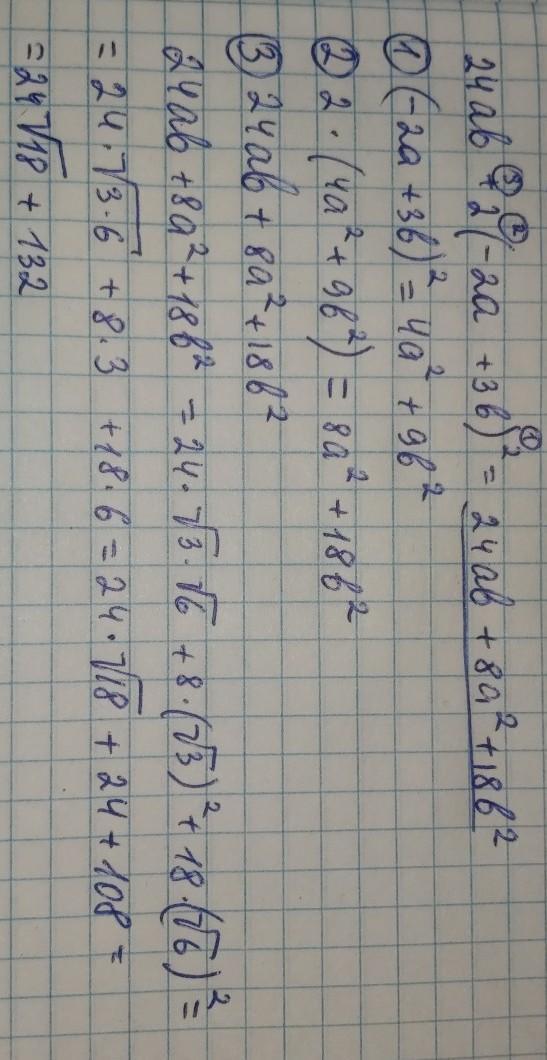 24ab +③ 2②(-2a + 3b)²① = 24ab + 8a² + 18b²
① (-2a + 3b)² = 4a² + 9b²
② 2 · (4a² + 9b²) = 8a² + 18b²
③ 24ab + 8a² + 18b²
24ab + 8a² + 18b² = 24 · √3 · √6 + 8 · (√3)² + 18 · (√6)² =
= 24 · √3·6 + 8·3 + 18·6 = 24 · √18 + 24 + 108 =
= 24√18 + 132